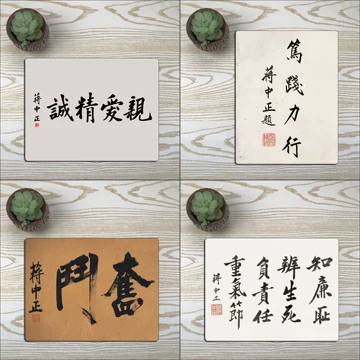 親愛精誠
蔣中正
篤踐力行
蔣中正題
奮鬥
蔣中正
知廉恥
辨生死
負責任
重氣節
蔣中正